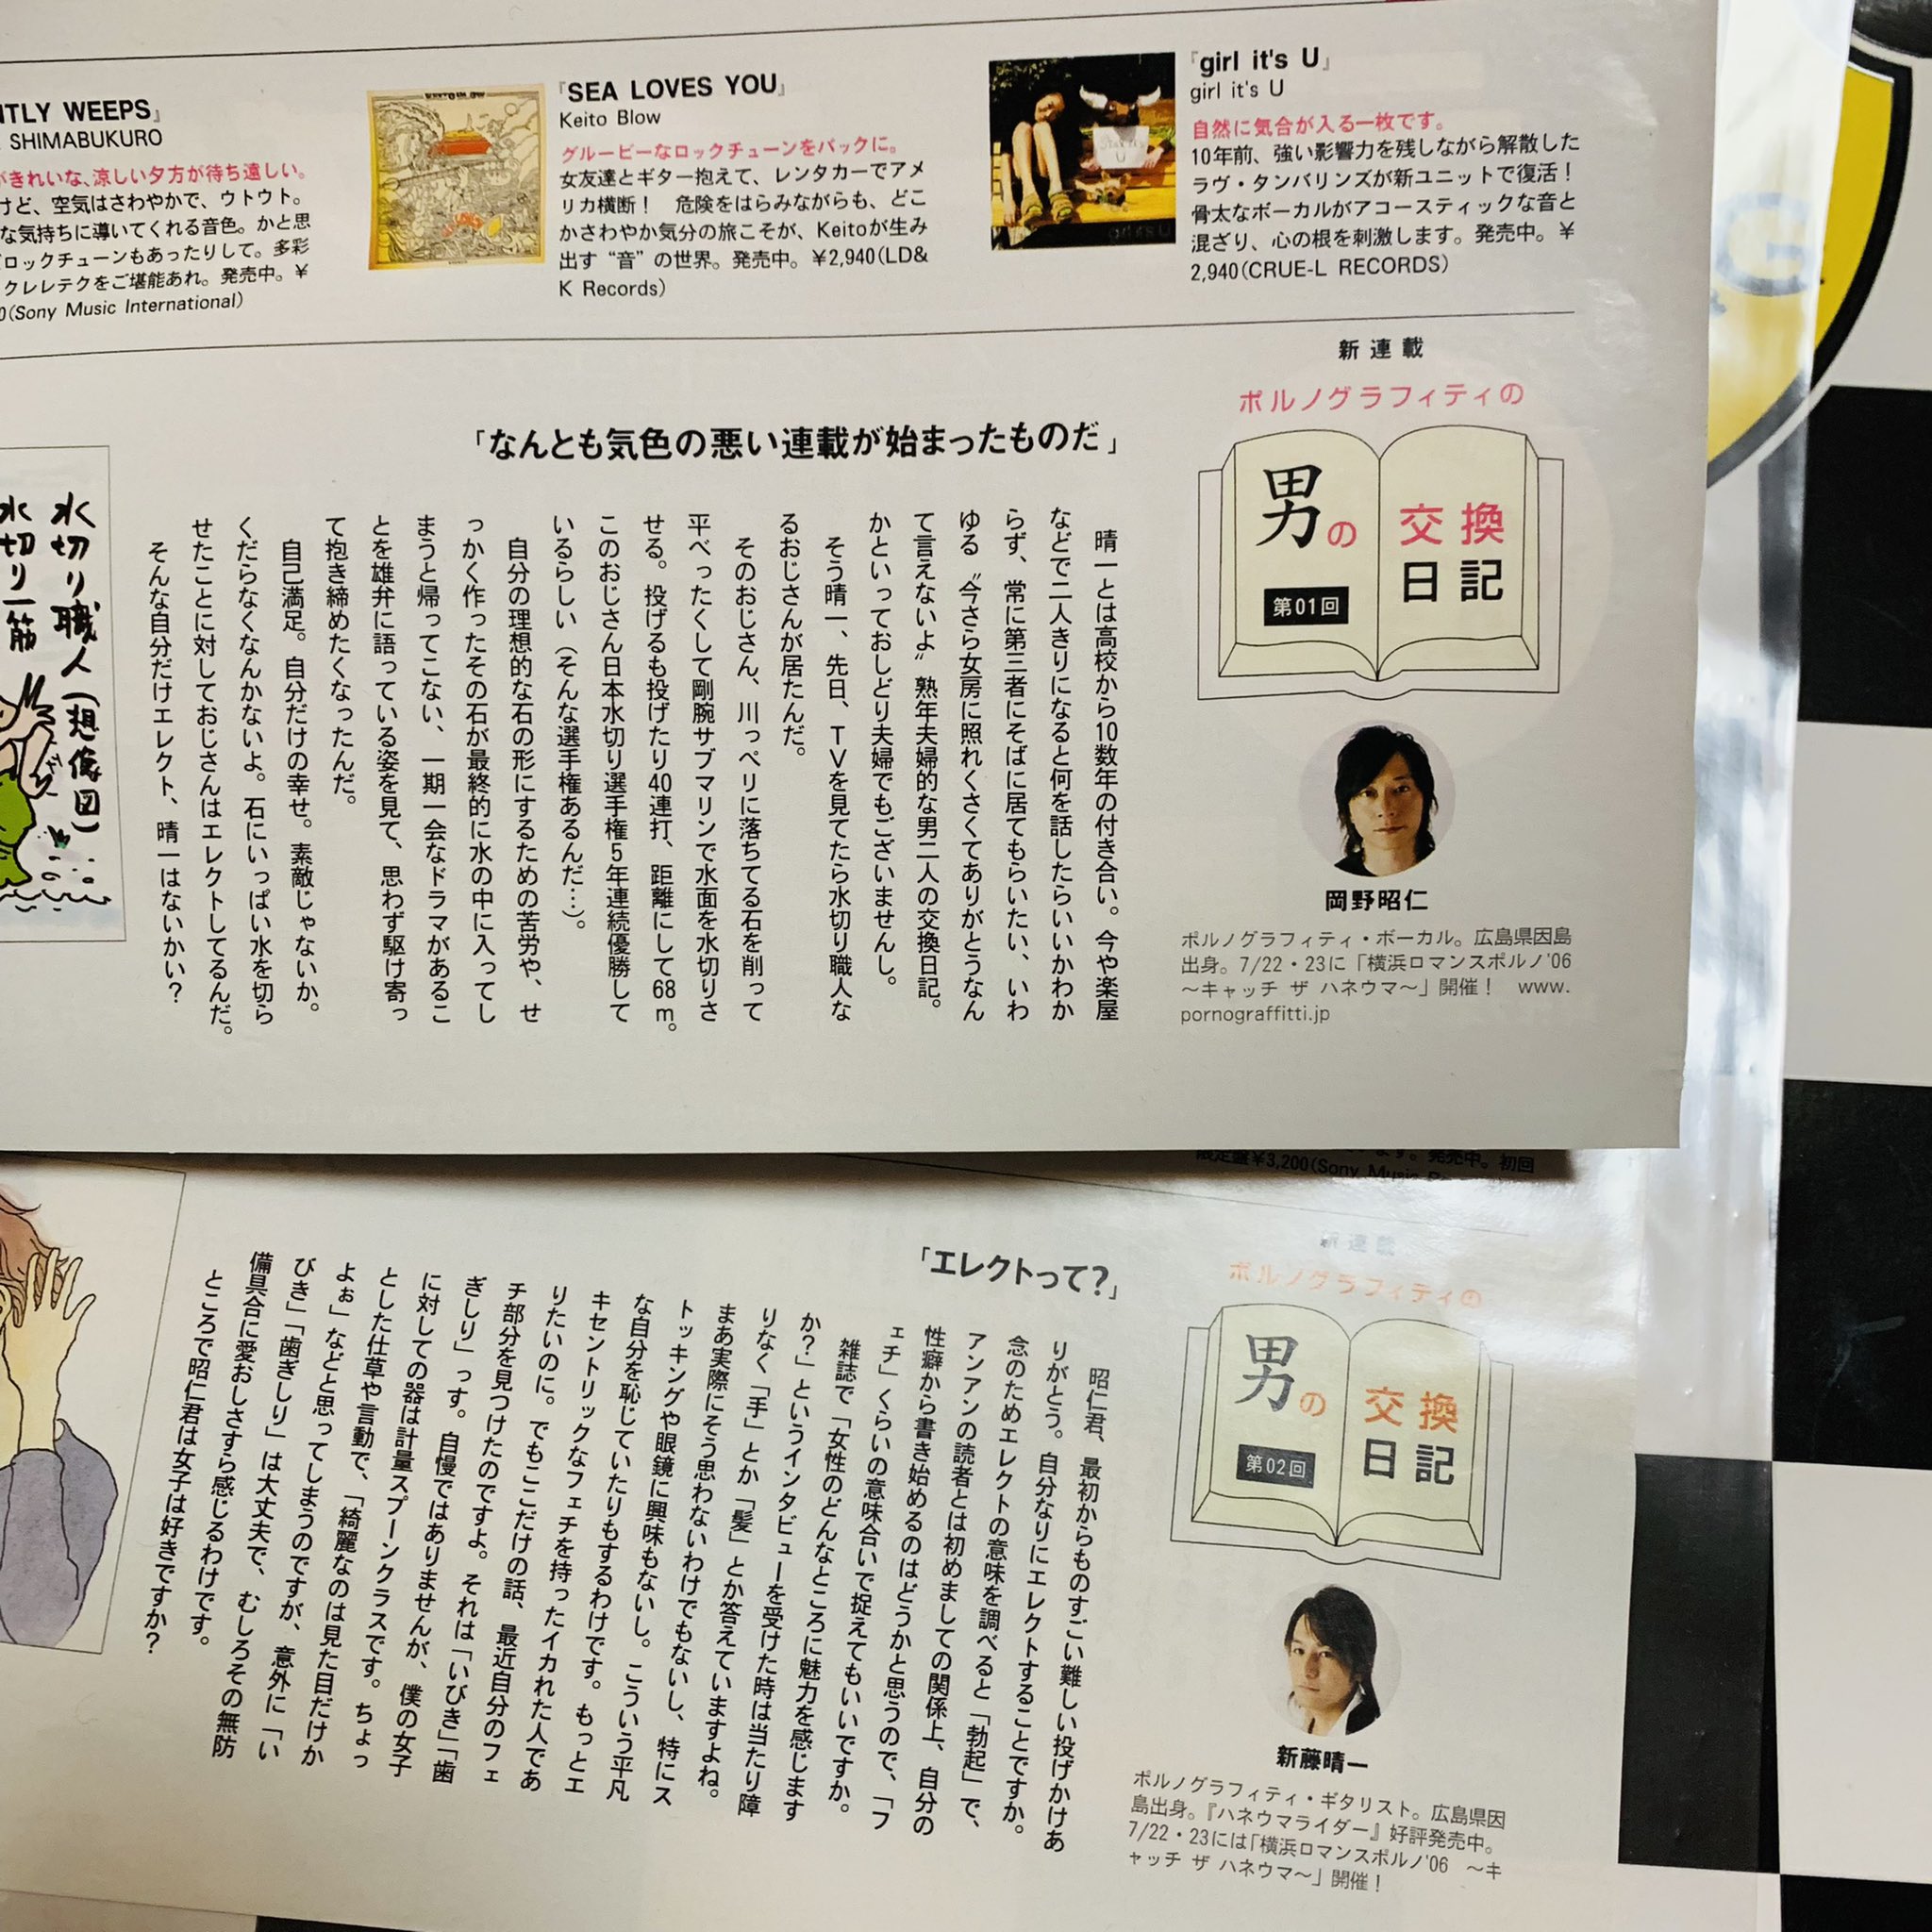 NTLY WEEPS』
SHIMABUKURO
がきれいな、涼しい夕方が待ち遠しい。
けど、空気はさわやかで、ウトウト。
な気持ちに導いてくれる音色。かと思
ロックチューンもあったりして。多彩
クレレテクをご堪能あれ。発売中。¥
0(Sony Music International)
『SEA LOVES YOU』
Keito Blow
グルービーなロックチューンをバックに。
女友達とギター抱えて、レンタカーでアメ
リカ横断！　危険をはらみながらも、どこ
かさわやか気分の旅こそが、Keitoが生み
出す“音”の世界。発売中。¥2,940(LD&
K Records)
『girl it's U』
girl it's U
自然に気合が入る一枚です。
10年前、強い影響力を残しながら解散した
ラヴ・タンバリンズが新ユニットで復活！
骨太なボーカルがアコースティックな音と
混ざり、心の根を刺激します。発売中。¥
2,940(CRUE-L RECORDS)
新連載
ポルノグラフィティの
男の
交換
日記
第01回
岡野昭仁
ポルノグラフィティ・ボーカル。広島県因島
出身。7/22・23に「横浜ロマンスポルノ'06
～キャッチ ザ ハネウマ～」開催！　www.
pornograffitti.jp
「なんとも気色の悪い連載が始まったものだ」
晴一とは高校から10数年の付き合い。今や楽屋
などで二人きりになると何を話したらいいかわか
らず、常に第三者にそばに居てもらいたい、いわ
ゆる〝今さら女房に照れくさくてありがとうなん
て言えないよ〟熟年夫婦的な男二人の交換日記。
かといっておしどり夫婦でもございませんし。
そう晴一、先日、TVを見てたら水切り職人な
るおじさんが居たんだ。
そのおじさん、川っぺリに落ちてる石を削って
平べったくして剛腕サブマリンで水面を水切りさ
せる。投げるも投げたり40連打、距離にして68m。
このおじさん日本水切り選手権5年連続優勝して
いるらしい（そんな選手権あるんだ…）。
自分の理想的な石の形にするための苦労や、せ
っかく作ったその石が最終的に水の中に入ってし
まうと帰ってこない、一期一会なドラマがあるこ
とを雄弁に語っている姿を見て、思わず駆け寄っ
て抱き締めたくなったんだ。
自己満足。自分だけの幸せ。素敵じゃないか。
くだらなくなんかないよ。石にいっぱい水を切ら
せたことに対しておじさんはエレクトしてるんだ。
そんな自分だけエレクト、晴一はないかい？
水切り職人(想像図)
水切り一筋
限定盤¥3,200(Sony Music
発売中。初回
新連載
ポルノグラフィティの
男の
交換
日記
第02回
新藤晴一
ポルノグラフィティ・ギタリスト。広島県因
島出身。『ハネウマライダー』好評発売中。
7/22・23には「横浜ロマンスポルノ'06　～キ
ャッチ ザ ハネウマ～」開催！
「エレクトって？」
昭仁君、最初からものすごい難しい投げかけあ
りがとう。自分なりにエレクトすることですか。
念のためエレクトの意味を調べると「勃起」で、
アンアンの読者とは初めましての関係上、自分の
性癖から書き始めるのはどうかと思うので、「フ
ェチ」くらいの意味合いで捉えてもいいですか。
雑誌で「女性のどんなところに魅力を感じます
か？」というインタビューを受けた時は当たり障
りなく「手」とか「髪」とか答えていますよね。
まあ実際にそう思わないわけでもないし、特にス
トッキングや眼鏡に興味もないし。こういう平凡
な自分を恥じていたりもするわけです。もっとエ
キセントリックなフェチを持ったイカれた人であ
りたいのに。でもここだけの話、最近自分のフェ
チ部分を見つけたのですよ。それは「いびき」「歯
ぎしり」っす。自慢ではありませんが、僕の女子
に対しての器は計量スプーンクラスです。ちょっ
とした仕草や言動で、「綺麗なのは見た目だけか
よぉ」などと思ってしまうのですが、意外に「い
びき」「歯ぎしり」は大丈夫で、むしろその無防
備具合に愛おしさすら感じるわけです。
ところで昭仁君は女子は好きですか？